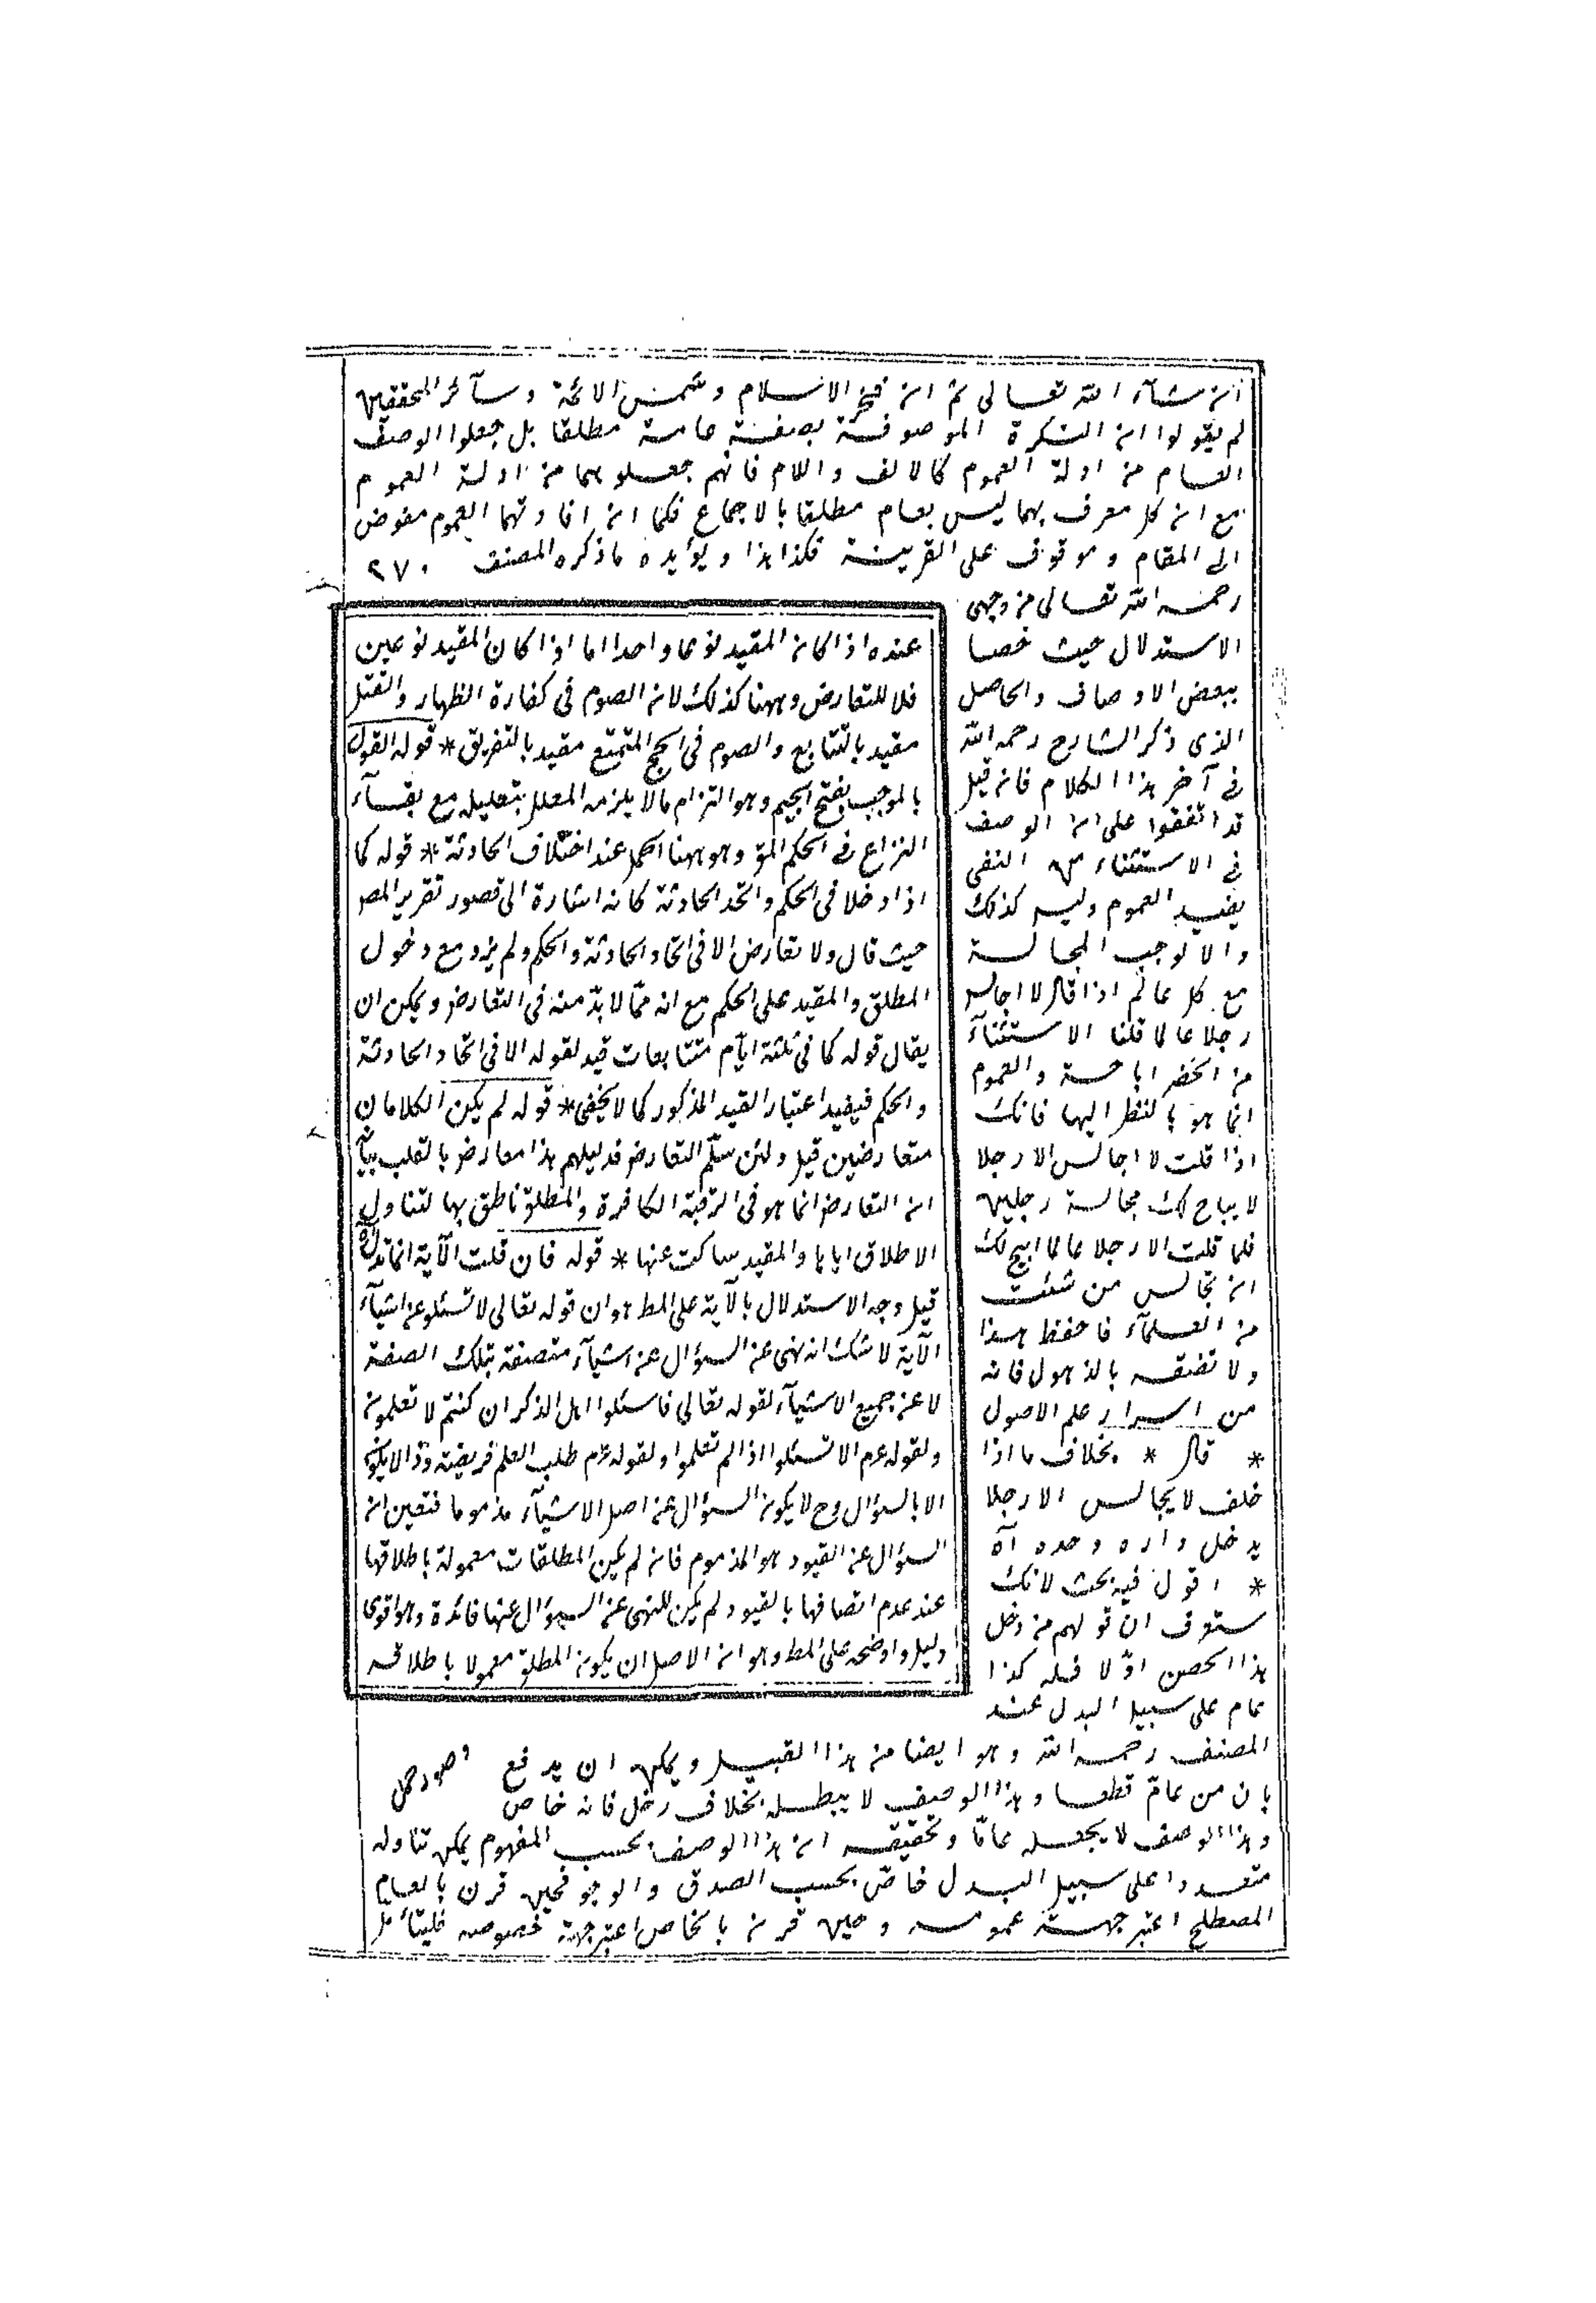 ان شآء الله تعالى ثم ان فخر الاسلام وشمس الائمة وسآئر المحققين
لم يقولوا ان النكرة الموصوفة بصفة عامة مطلقا بل جعلوا الوصف
العام من ادلة العموم كالالف واللام فانهم جعلوهما من ادلة العموم
مع ان كل معرف بهما ليس بعام مطلقا بالاجماع فكما ان افادتهما العموم مفوض
الى المقام وموقوف على القرينة فكذا هذا ويؤيده ما ذكره المصنف ٢٧٠
رحمه الله تعالى من وجهى
الاستدلال حيث خصا
ببعض الاوصاف والحاصل
الذى ذكر الشارح رحمه الله
فى آخر هذا الكلام فان قيل
قد اتفقوا على ان الوصف
فى الاستثناء من النفى
يفيد العموم وليس كذلك
والا لوجب المجالسة
مع كل عالم اذا قال لا اجالس
رجلا عالما قلنا الاستثنآء
من الحضر اباحة والعموم
انما هو بالنظر اليها فانك
اذا قلت لا اجالس الا رجلا
لا يباح لك مجالسة رجلين
فلما قلت الا رجلا عالما ابيح لك
ان تجالس من شئت
من العلمآء فاحفظ هذا
ولا تضيعه بالذهول فانه
من اسرار علم الاصول
* قال * بخلاف ما اذا
حلف لا يجالس الا رجلا
يدخل داره وحده آه
* اقول فيه بحث لانك
ستعرف ان قولهم من دخل
هذا الحصن اوّلا فله كذا
عام على سبيل البدل عند
المصنف رحمه الله وهو ايضا من هذا القبيل ويمكن ان يدفع
بان من عامّ قطعا وهذا الوصف لا يبطله بخلاف رجل فانه خاص
وهذا الوصف لا يجعله عامّا وتحقيقه ان هذا الوصف بحسب المفهوم يمكن تناوله
متعددا على سبيل البدل خاصّ بحسب الصدق والوجود فحين قرن بالعام
المصطلح اعتبر جهة عمومه وحين قرن بالخاص اعتبر جهة خصوصه فليتأمل
عنده اذا كان المقيد نوعا واحدا اما اذا كان المقيد نوعين
فلا للتعارض وههنا كذلك لان الصوم فى كفارة الظهار والقتل
مقيد بالتتابع والصوم فى الحج المتمتع مقيد بالتفريق * قوله القول
بالموجب بفتح الجيم وهو التزام ما لا يلزمه المعلل بتعليله مع بقآء
النزاع فى الحكم المق وهو ههنا الحمل عند اختلاف الحادثة * قوله كما
اذا دخلا فى الحكم واتحد الحادثة كانه اشارة الى قصور تقرير المص
حيث قال ولا تعارض الا فى اتحاد الحادثة والحكم ولم يزد مع دخول
المطلق والمقيد على الحكم مع انه ممّا لا بدّ منه فى التعارض ويمكن ان
يقال قوله كما فى ثلثة ايّام متتابعات قيد لقوله الا فى اتحاد الحادثة
والحكم فيفيد اعتبار القيد المذكور كما لا يخفى * قوله لم يكن الكلامان
متعارضين قيل ولئن سلّم التعارض فدليلهم هذا معارض بالقلب
ان التعارض انما هو فى الرقبة الكافرة والمطلق ناطق بها لتناول
الاطلاق اياها والمقيد ساكت عنها * قوله فان قلت الآية انما تدل
قيل وجه الاستدلال بالآية على المط هو ان قوله تعالى لا تسئلوا عن اشيآء
الآية لا شك انه نهى عن السؤال عن اشيآء متصفة بتلك الصفة
لا عن جميع الاشيآء لقوله تعالى فاسئلوا اهل الذكر ان كنتم لا تعلمون
ولقوله عم الا تسئلوا اذا لم تعلموا ولقوله عم طلب العلم فريضة وذا لا يكون
الا بالسؤال وح لا يكون السؤال عن اصل الاشيآء مذموما فتعين ان
السؤال عن القيود هو المذموم فان لم يكن المطلقات معمولة باطلاقها
عند عدم اتصافها بالقيود لم يكن للنهى عن السؤال عنها فائدة وهو اقوى
دليل واوضحه على المط وهو ان الاصل ان يكون المطلق معمولا باطلاقه